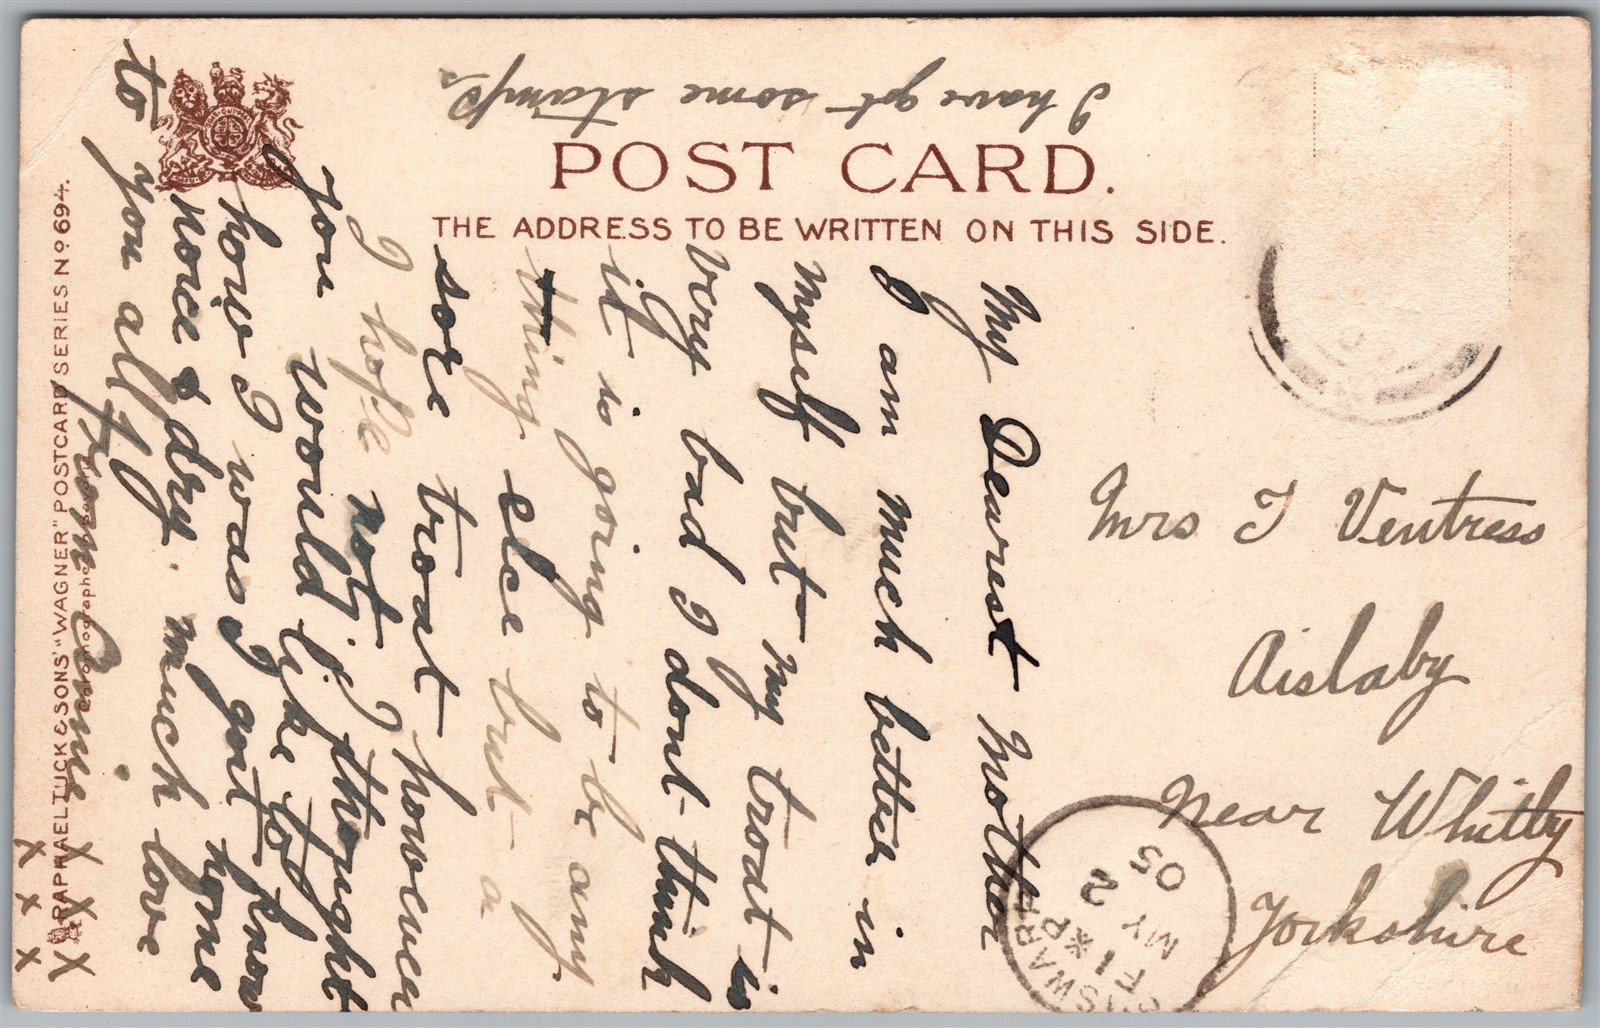 I have got some stamps.
POST CARD.
THE ADDRESS TO BE WRITTEN ON THIS SIDE.
My Dearest Mother
I am much better in
myself but my troat is
very bad I dont think
it is going to be any
thing else but a
sore troat howeveer
I hope not. I thought
you would like to
know
how I was I got home
nice & dry. much love
to you all
from
x x x
x x x
Mrs T Ventress
Aislaby
Near Whitby
Yorkshire
MY 2
05
RAPHAEL TUCK & SONS' "WAGNER" POSTCARD SERIES No 694.